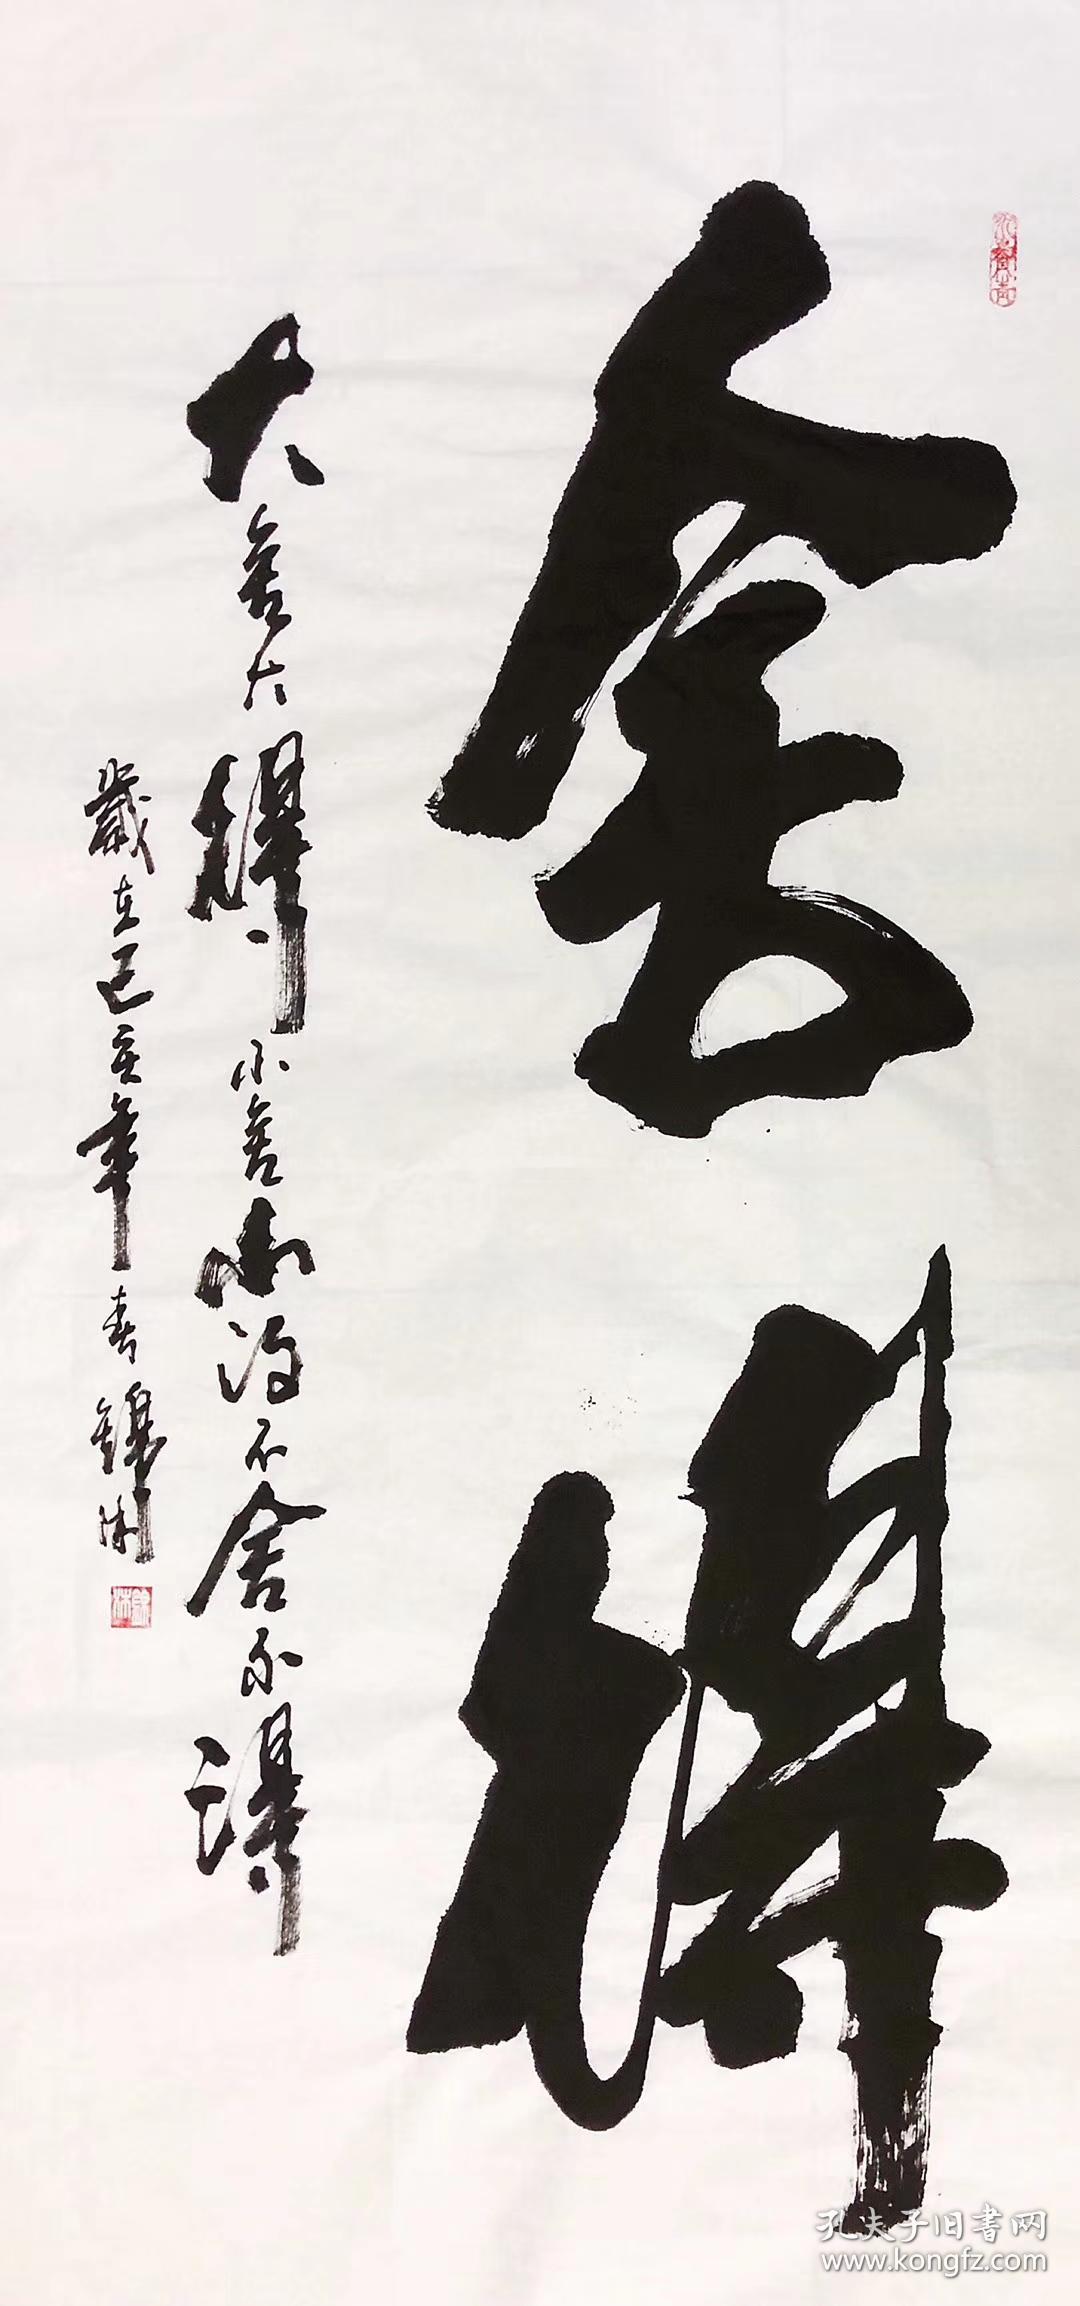 舍得
大舍大得小舍小得不舍不得
歲在己亥年春錦林
錦林
孔夫子旧書网
www.kongfz.com